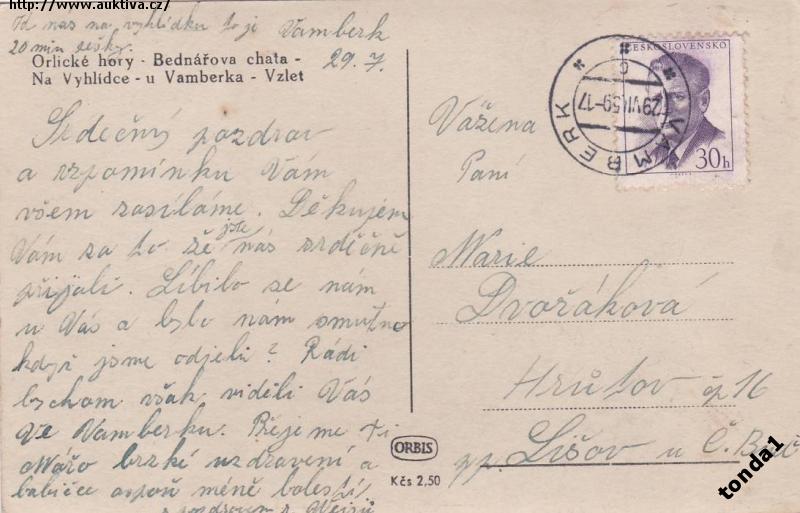 http://www.auktiva.cz/
Od nas na vyhlídku to je Vamberk
20 min pěšky. 29. 7.
Orlické hory - Bednářova chata -
Na Vyhlídce - u Vamberka - Vzlet
Srdečný pozdrav
a vzpomínku Vám
všem zasíláme. Děkujem
Vám za to že jste nás srdečně
přijali. Líbilo se nám
u Vás a bylo nám smutno
když jsme odjeli? Rádi
bychom však viděli Vás
ve Vamberku. Přejeme ti
Mářo brzké uzdravení a
babičce aspoň méně bolestí
s pozdravem
ČESKOSLOVENSKO
30h
VAMBERK
29.VII.59-17
c
Vážená
Paní
Marie
Dvořáková
Hrůtov čp 16
Lišov u Č. Buď
ORBIS
Kčs 2,50
tonda1